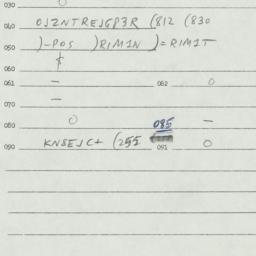 030 O
040 OJZNTREJGP3R (812 (830
050 )-POS )RIMIN )=RIMIT
060 $
061 - 062 O
070 -
080 O 085 -
090 KNSEJC+ (255 091 O